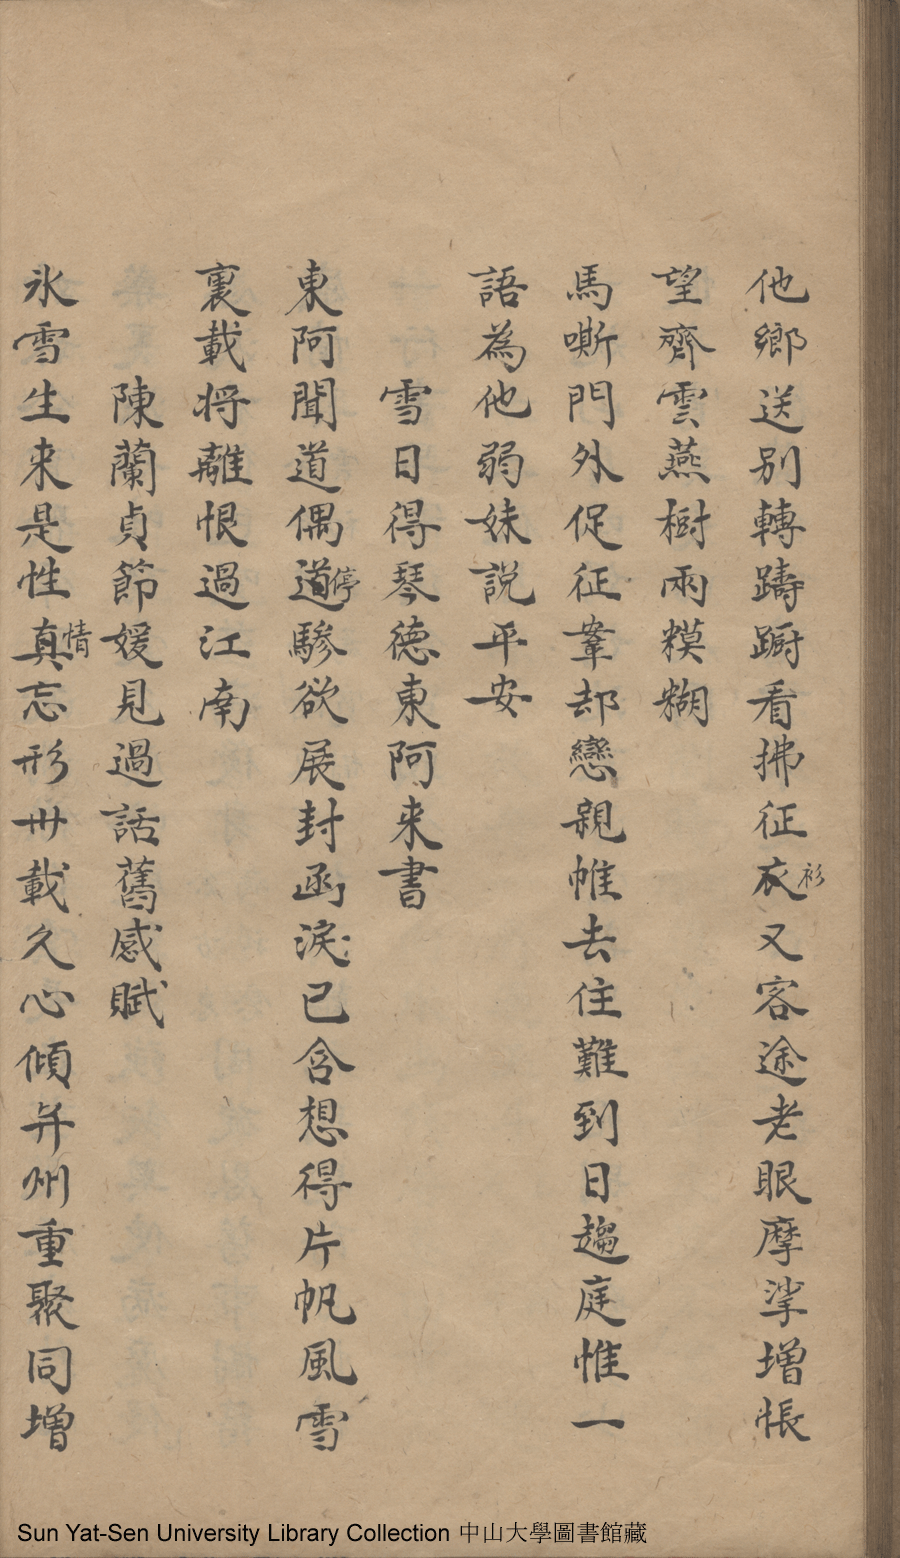 他鄉送别轉躊蹰看拂征衣衫又客途老眼摩挲增悵
望齊雲燕樹雨糢糊
馬嘶門外促征鞌却戀親帷去住難到日趨庭惟一
語為他弱妹説平安
雪日得琴德東阿来書
東阿聞道偶道停驂欲展封函淚已含想得片帆風雪
裏載将離恨過江南
陳蘭貞節媛見過話舊感賦
氷雪生来是性真情忘形卅載久心傾并州重聚同增
Sun Yat-Sen University Library Collection 中山大學圖書館藏